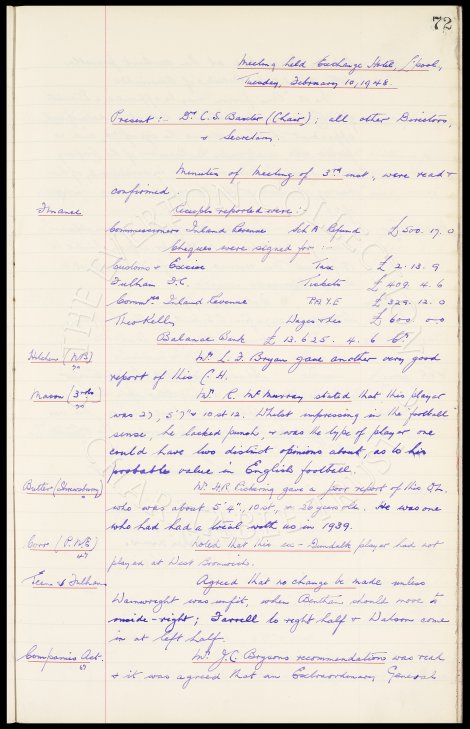 72
Meeting held Exchange Hotel, L'pool,
Tuesday, February 10, 1948.
Present :- Dr. C.S. Baxter (Chair); all other Directors,
& Secretary.
Minutes of Meeting of 3rd inst., were read &
confirmed.
Finance Receipts reported were :-
Commissioners Inland Revenue Sch A Refund £500. 17. 0
Cheques were signed for :-
Customs & Excise Tax £ 2. 13. 9
Fulham F.C. Tickets £ 409. 4. 6
Commrs Inland Revenue P.A.Y.E £ 329. 12. 0
Theo Kelly Wages etc £ 600. 0. 0
Balance Bank £ 13.625. 4. 6 Cr.
Mr. L.F. Bryan gave another very good
report of this C.H.
Mason (3rd L) Mr. R. McMurray stated that this player
was 27, 5'7" & 10 st 12. Whilst impressing in the "football"
sense, he lacked punch, & was the type of player one
could have two distinct opinions about, as to his
probable value in English football.
Butler (Shrewsbury) Mr. H.R. Pickering gave a poor report of this OL
who was about 5'4", 10 st., & 26 years old. He was one
who had had a trial with us in 1939.
Corr (P.N.E) Noted that this ex-Dundalk player had not
played at West Bromwich.
Team v Fulham Agreed that no change be made unless
Wainwright was unfit, when Bentham should move to
inside-right; Farrell to right half & Watson come
in at left half.
Companies Act. Mr. J.C. Brysons recommendations was read
& it was agreed that an Extraordinary General